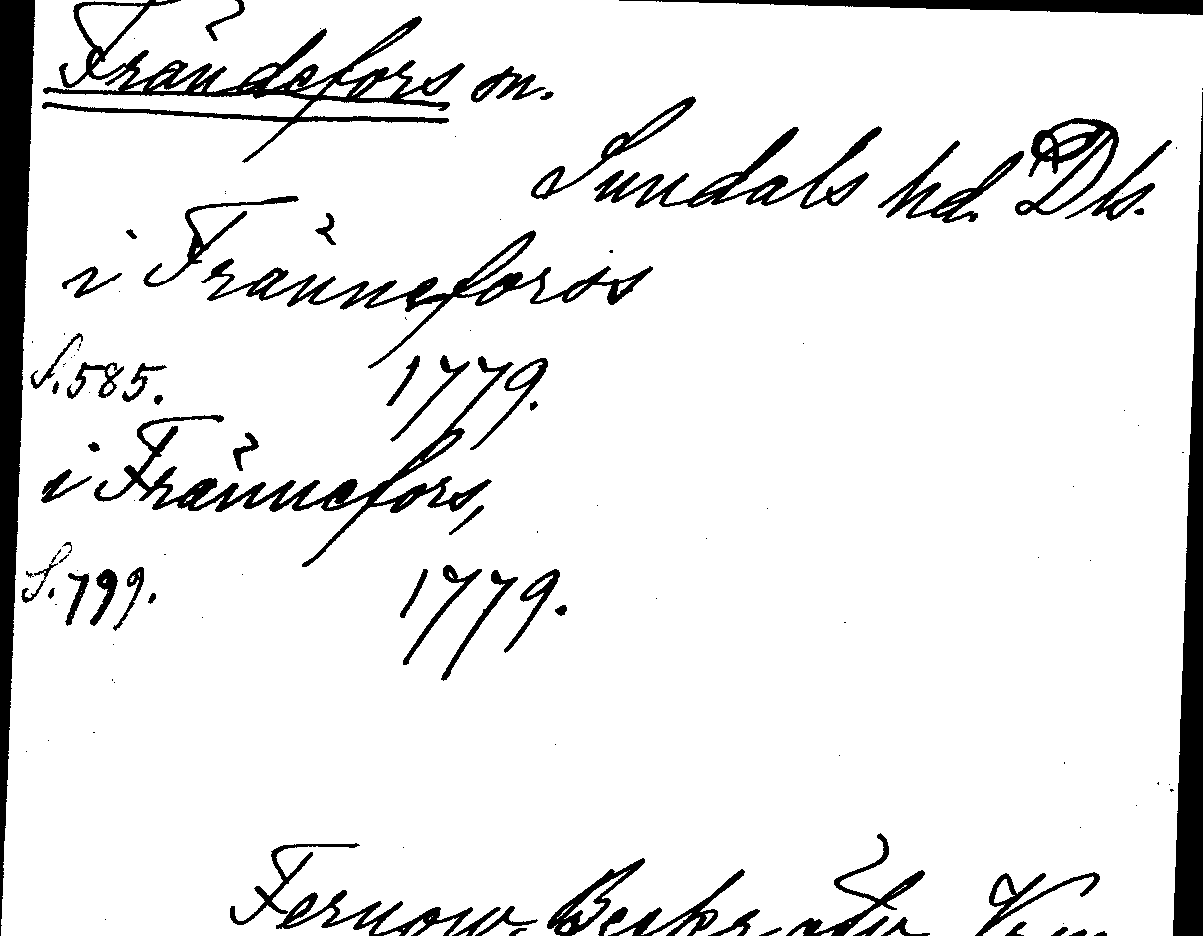 Frändefors sn.
Sundals hd. Dls.
i Fränneforss
S. 585. 1779.
i Frännefors,
S. 799. 1779.
Fernow, Beskr. öfv. Verm